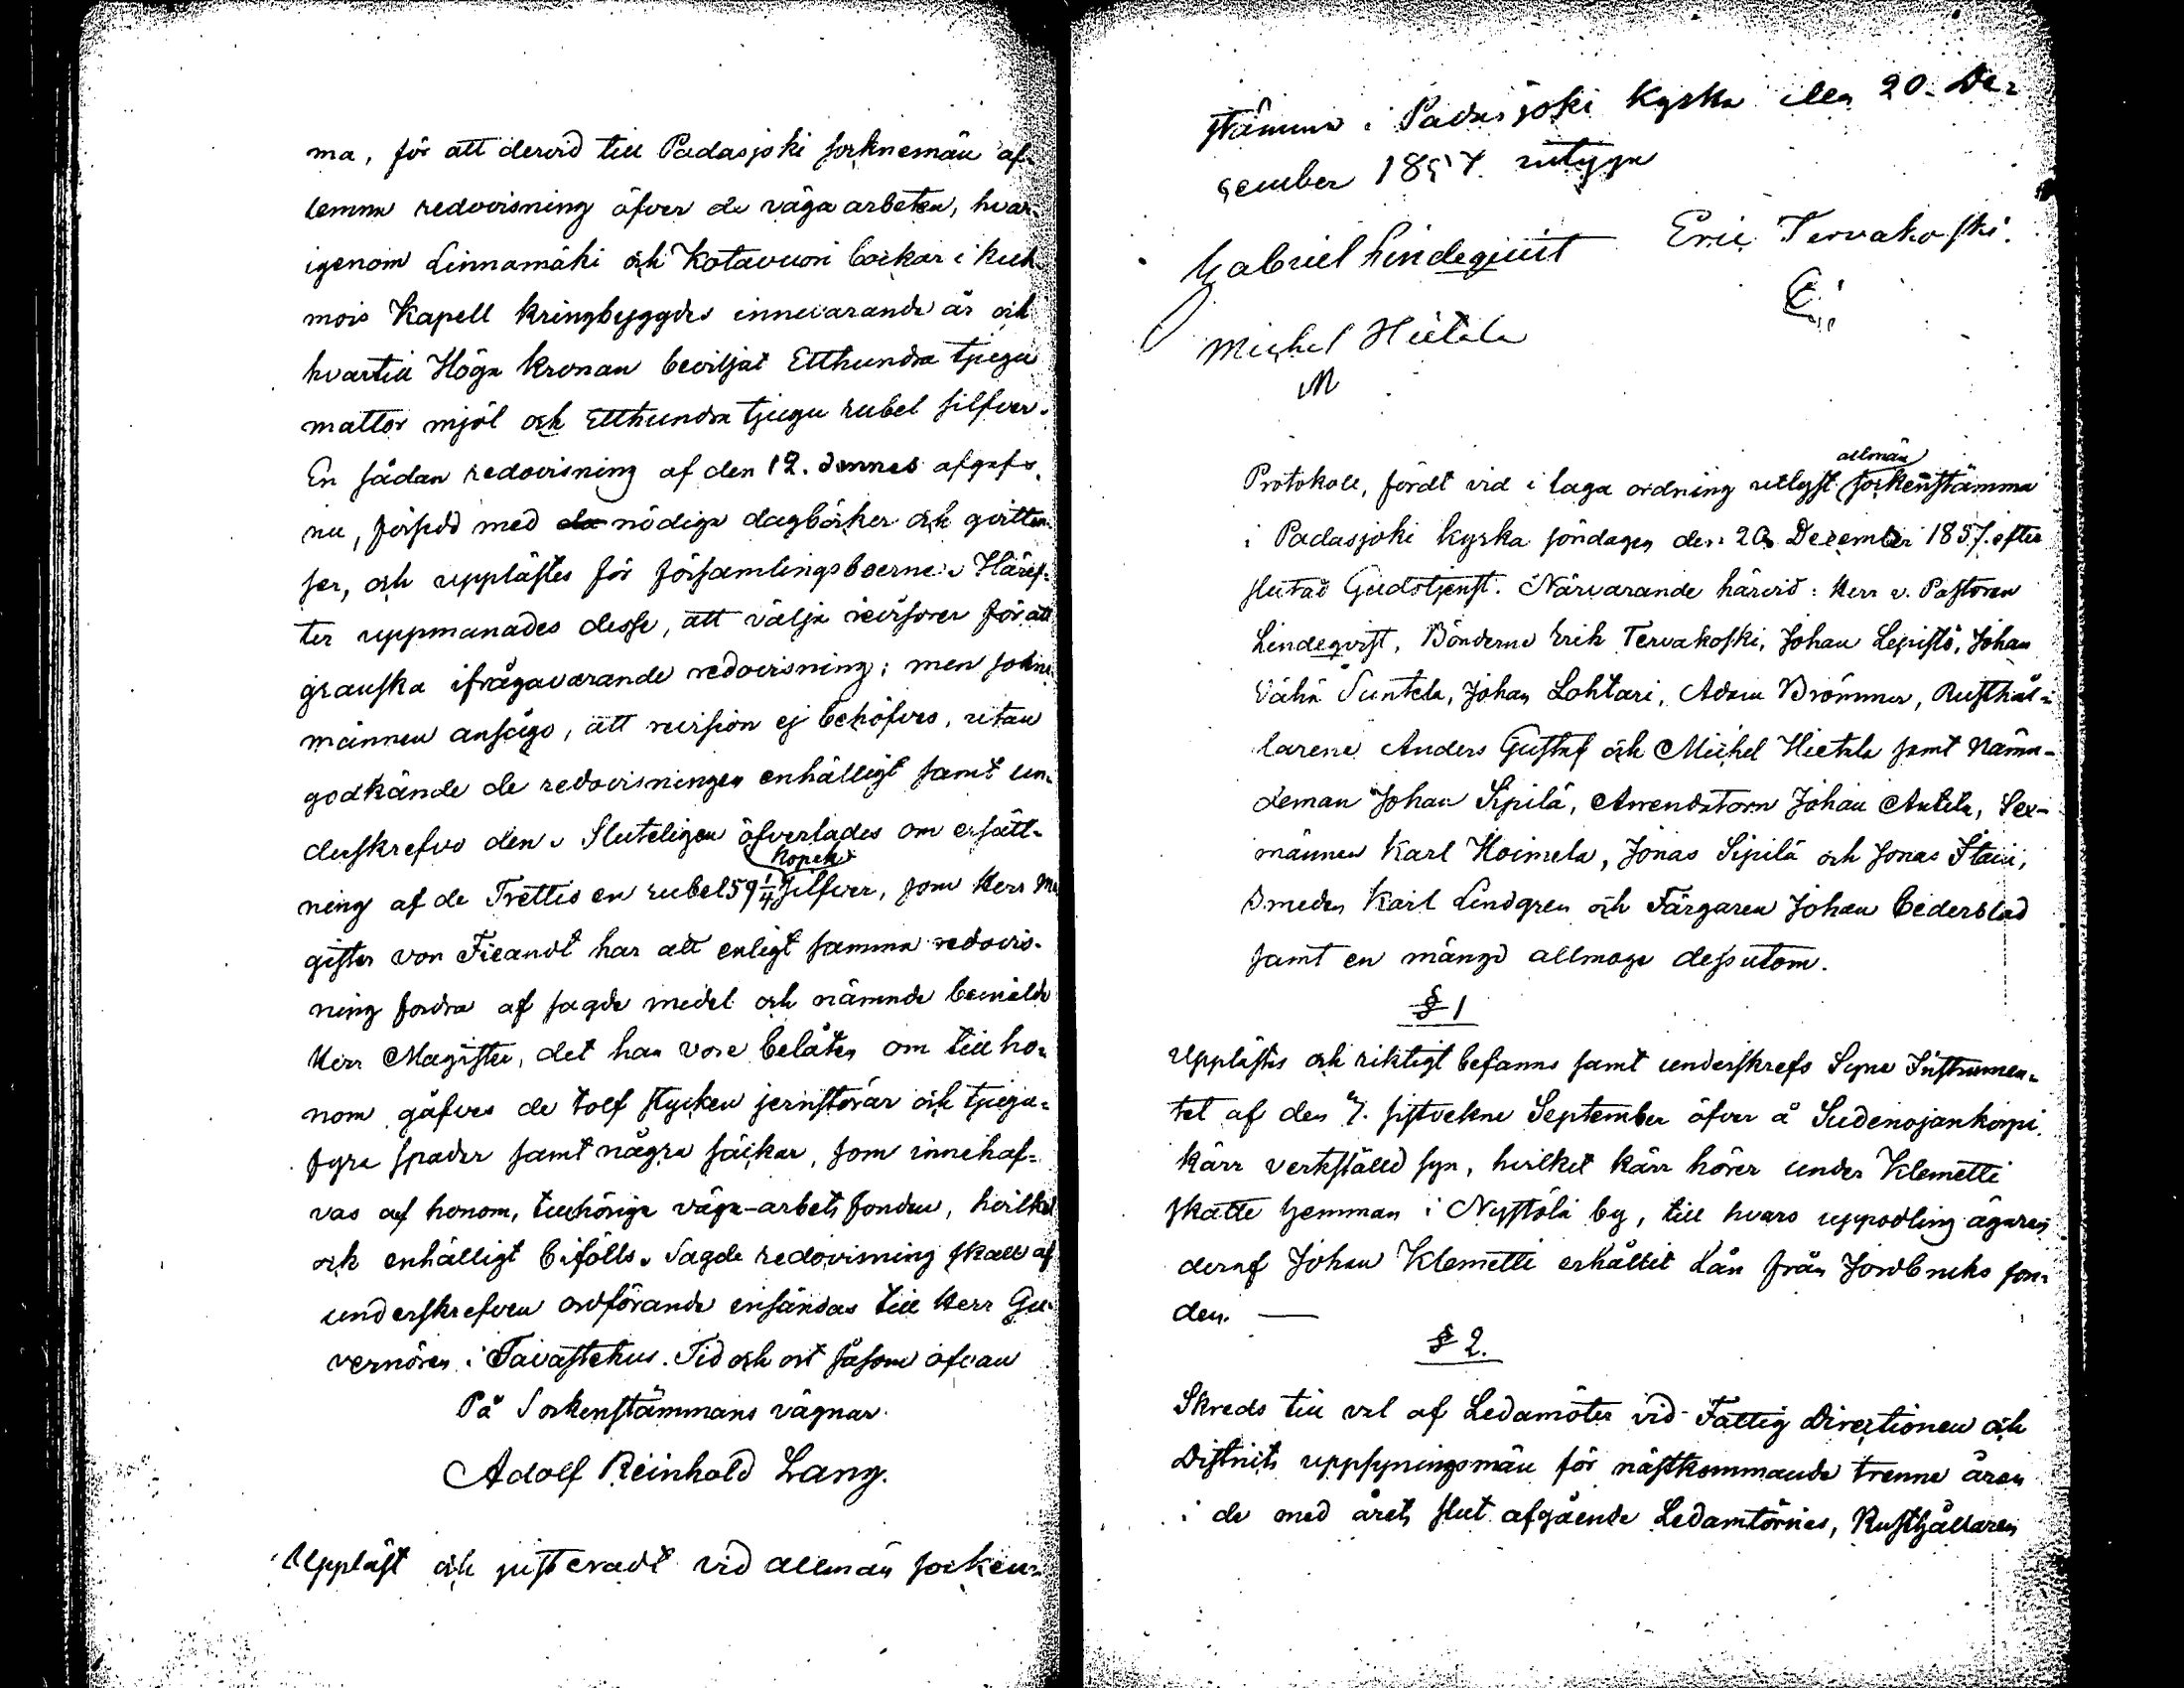 ma, för att dervid till Padasjoki socknemän af-
lemna redovisning öfver de väga arbeten, hvar-
igenom Linnamäki och Kotavuori backar i Kuh-
mois Kapell kringbyggdes innevarande år och
hvartill Höga Kronan beviljat Etthundra tjugu
mattor mjöl och Etthundra tjugu rubel silfver.
En sådan redovisning af den 12. dennes afgafs
nu, försedd med nödiga dagböcker och qvitten-
ser, och upplästes för församlingsboerne. Häref-
ter uppmanades desse, att välja revisorer för att
granska ifrågavarande redovisning; men sockne-
männen ansågo, att revision ej behöfves, utan
godkände de redovisningen enhälligt samt un-
derskrefvo den. Sluteligen öfverlades om ersätt-
ning af de Trettio en rubel 59 1/4 Kopek silfver, som Herr Ma-
gister von Fieandt har att enligt samma redovis-
ning fordra af sagde medel och nämnde bemälde
Herr Magister, det han vore belåten om till ho-
nom gåfves de tolf stycken jernstörar och tjugu-
fyra spader samt några säckar, som innehaf-
vas af honom, tillhöriga väga-arbets fonden, hvilket
ock enhälligt bifölls. Sagde redovisning skall af
underskrefven ordförande insändas till Herr Gu-
vernören i Tavastehus. Tid och ort såsom ofvan
På Sockenstämmans vägnar.
Adolf Reinhold Lang.
Uppläst och justeradt vid allmän socken-
stämma i Padasjoki Kyrka den 20. De-
cember 1857. intyga
Gabriel Lindeqvist Eric Tervakoski.
Michel Hietala
M
Protokoll, fördt vid i laga ordning utlyst allmän sockenstämma
i Padasjoki kyrka söndagen den 20. December 1857. efter
slutad Gudstjenst. Närvarande härvid: Herr v. Pastoren
Lindeqvist, Bönderne Erik Tervakoski, Johan Lepistö, Johan
Vähä Suntela, Johan Lohtari, Adam Brömmer, Rusthål-
larene Anders Gustaf och Michel Hietala samt Nämn-
deman Johan Sipilä, Arrendatorn Johan Antila, Sex-
männen Karl Hoimela, Jonas Sipilä och Jonas
Smeden Karl Lindgren och Färgaren Johan Cederblad
samt en mängd allmoge dessutom.
§ 1
Upplästes och riktigt befanns samt underskrefs Syne Instrumen-
tet af den 7. sistvekne September öfver å Sudenojankorpi
kärr verkställd syn, hvilket kärr hörer under Klemetti
skatte hemman i Nystölä by, till hvars uppodling ägaren
deraf Johan Klemetti erhållit Lån från Jordbruks fon-
den. —
§ 2.
Skreds till val af Ledamöter vid Fattig Directionen och
Districts uppsyningsmän för nästkommande trenne åren
i de med årets slut afgående Ledamöternes, Rusthållaren